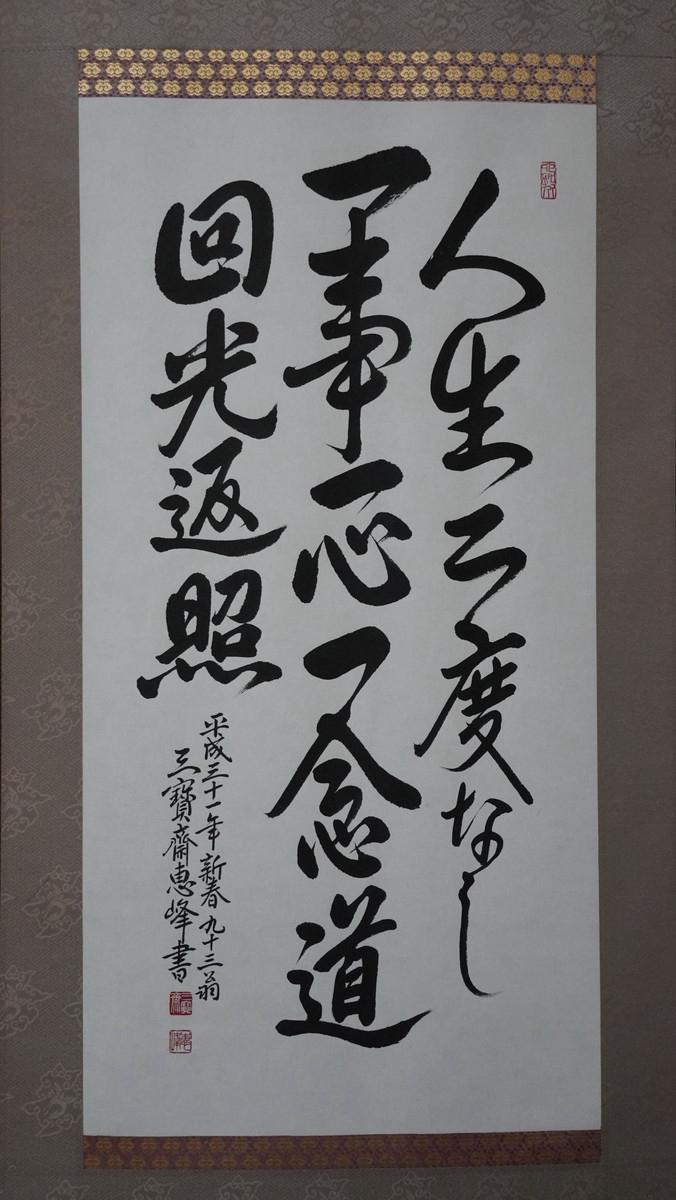 人生二度なし
一事一心一念道
回光返照
平成三十一年新春 九十三翁
三寶齋恵峰書